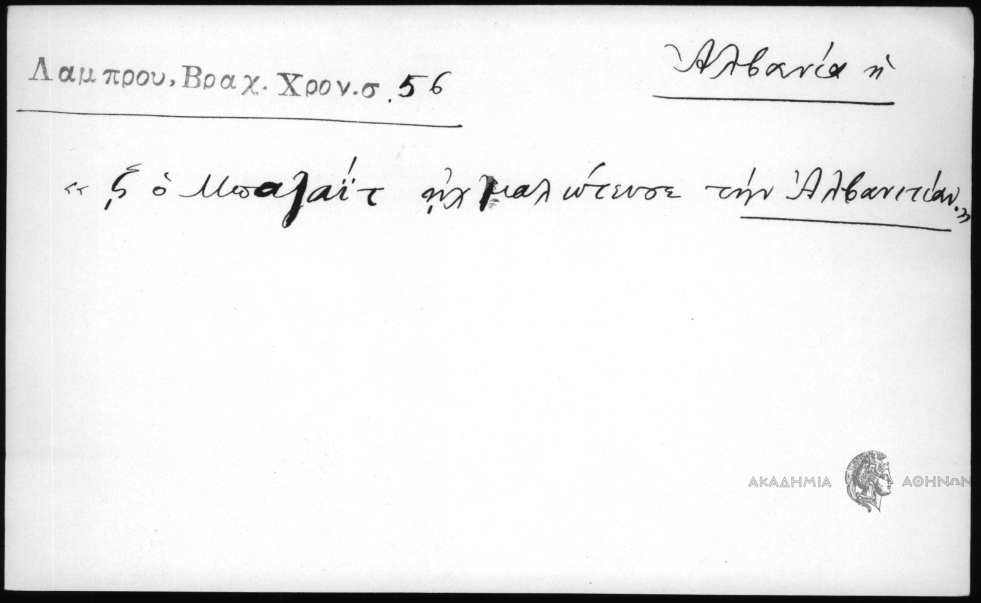 Λαμπρου, Βραχ. Χρον. σ. 56
Ἀλβανία ἡ
« ϛ ὁ Μπαγαΐτ ᾐχμαλώτευσε τὴν Ἀλβανιτίαν.»
ΑΚΑΔΗΜΙΑ ΑΘΗΝΩΝ